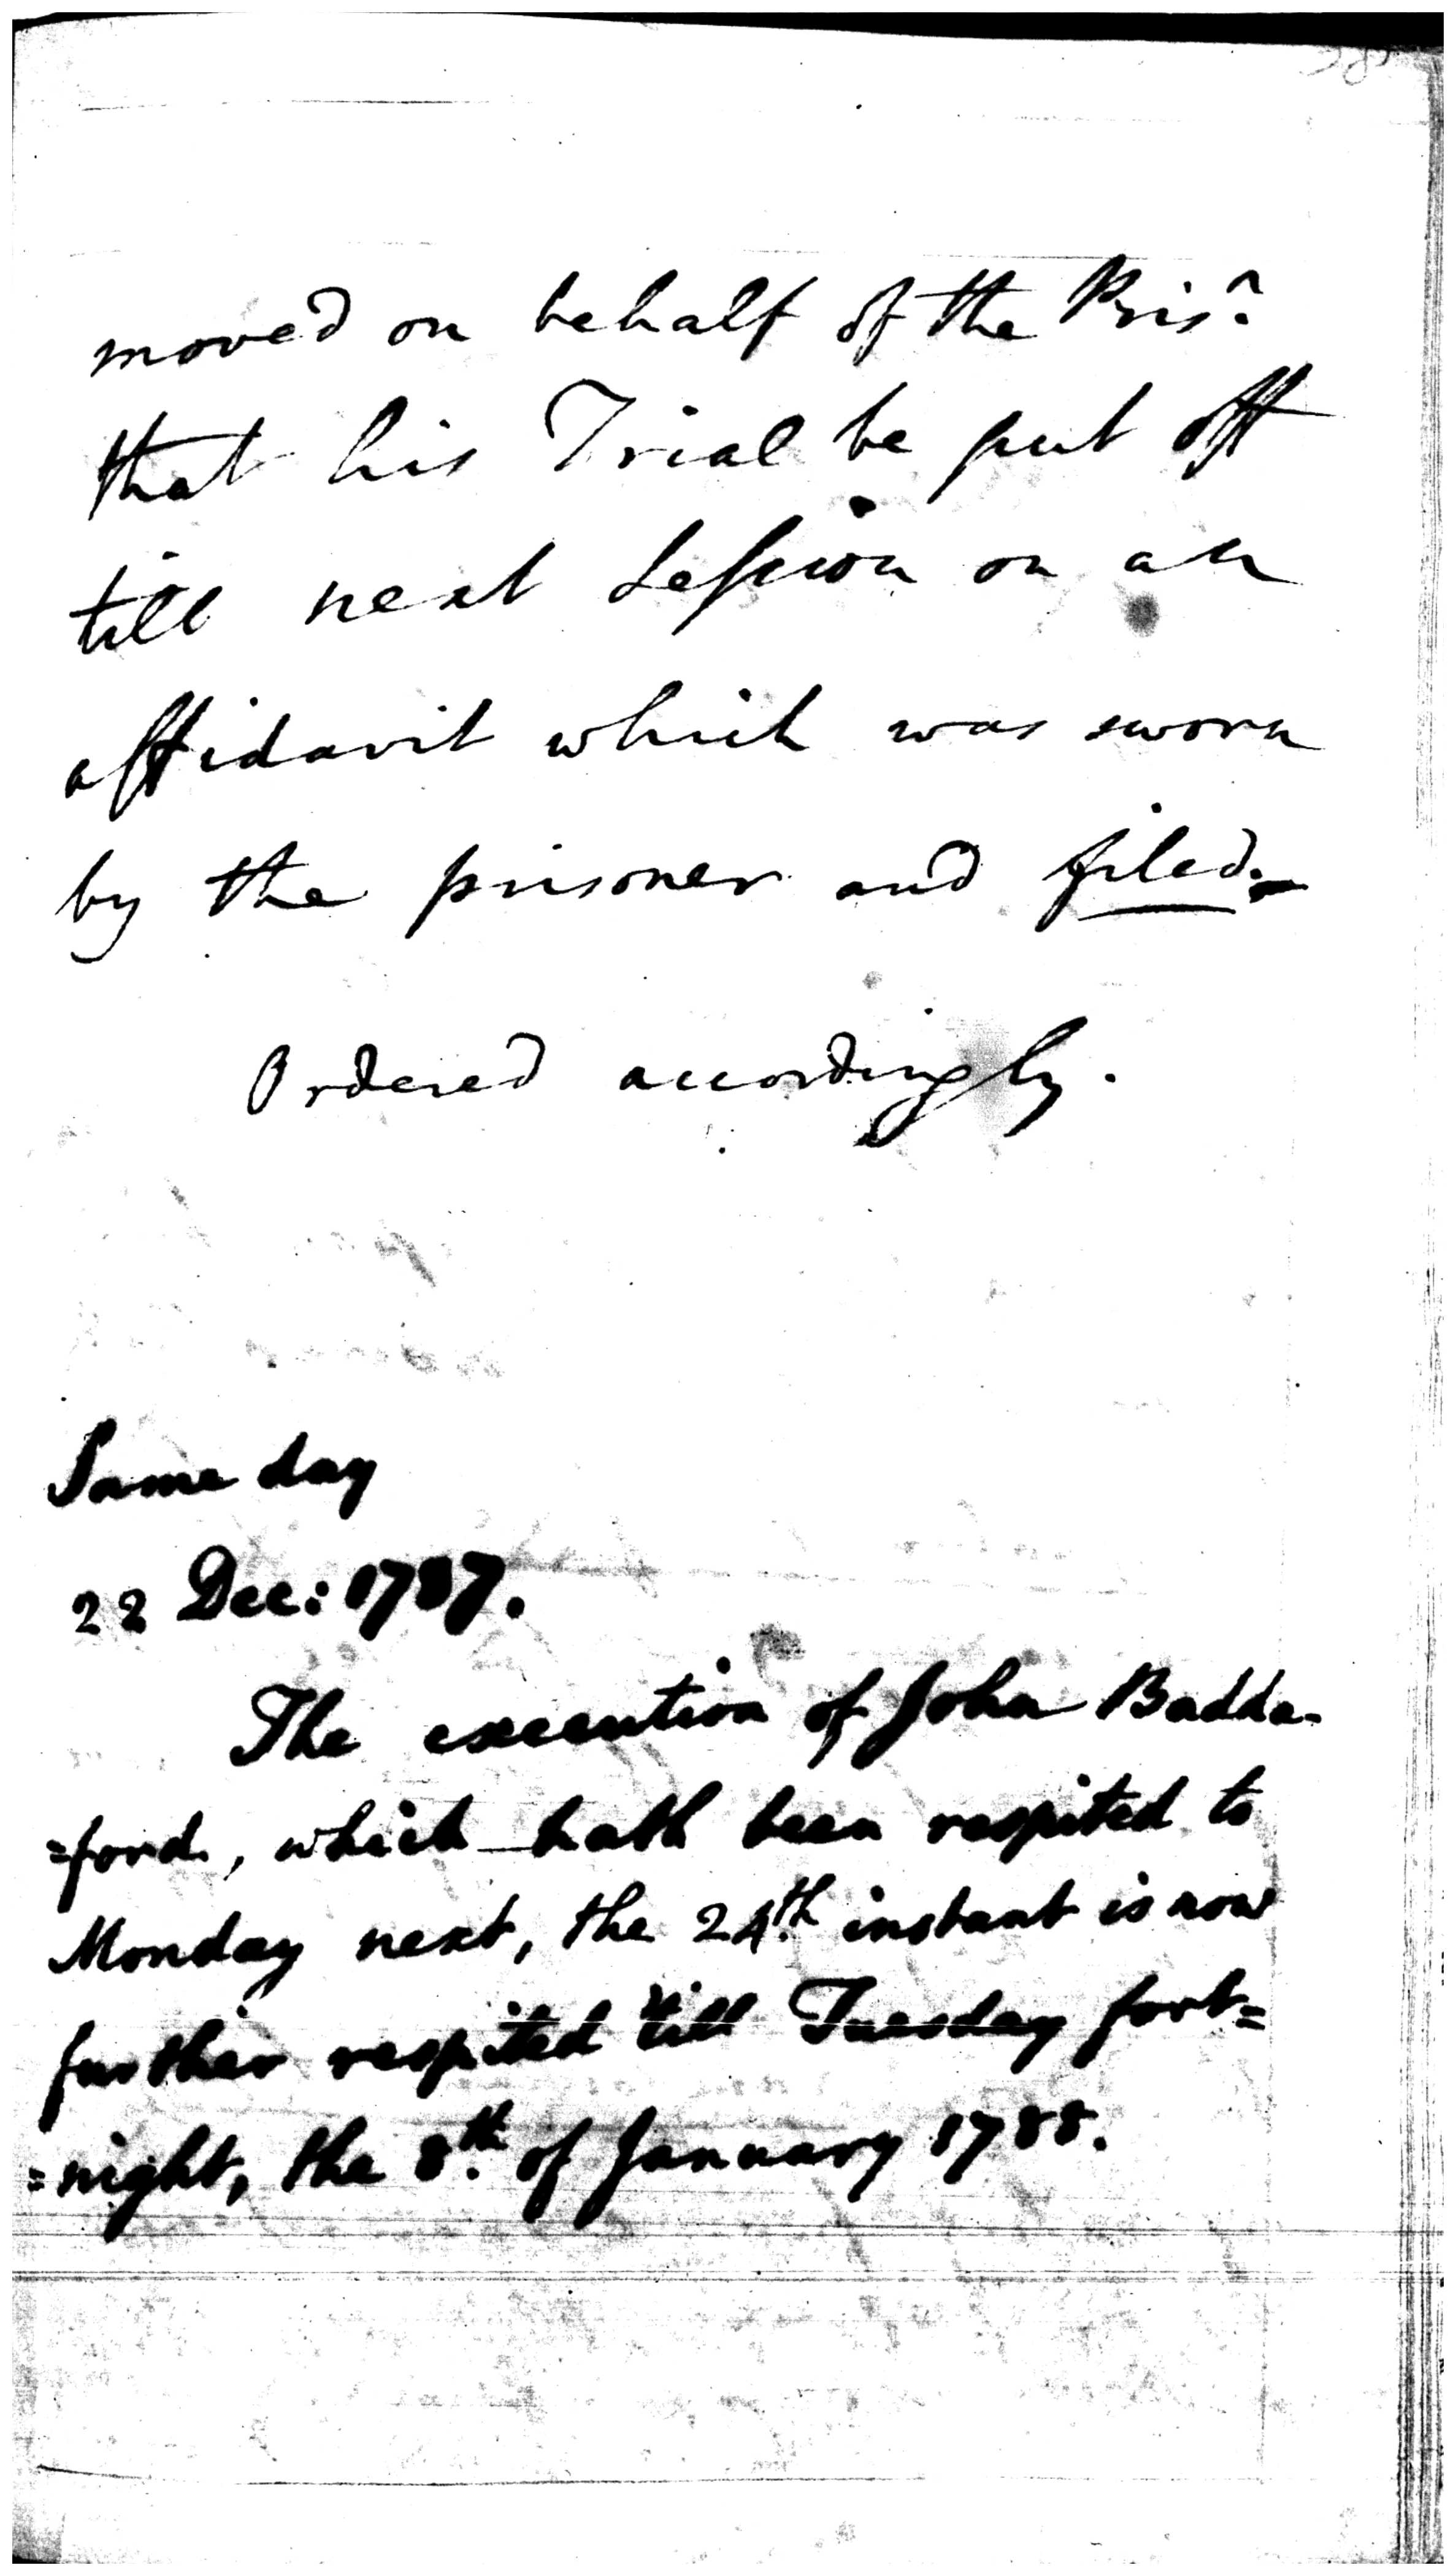 moved on behalf of the Pris.r
that his Trial be put off
till next Session on an
affidavit which was sworn
by the prisoner and filed.
Ordered accordingly.
Same day
22 Dec: 1787.
The execution of John Badda-
=ford, which hath been respited to
Monday next, the 24.th instant is now
further respited till Tuesday fort=
=night, the 8.th of January 1788.